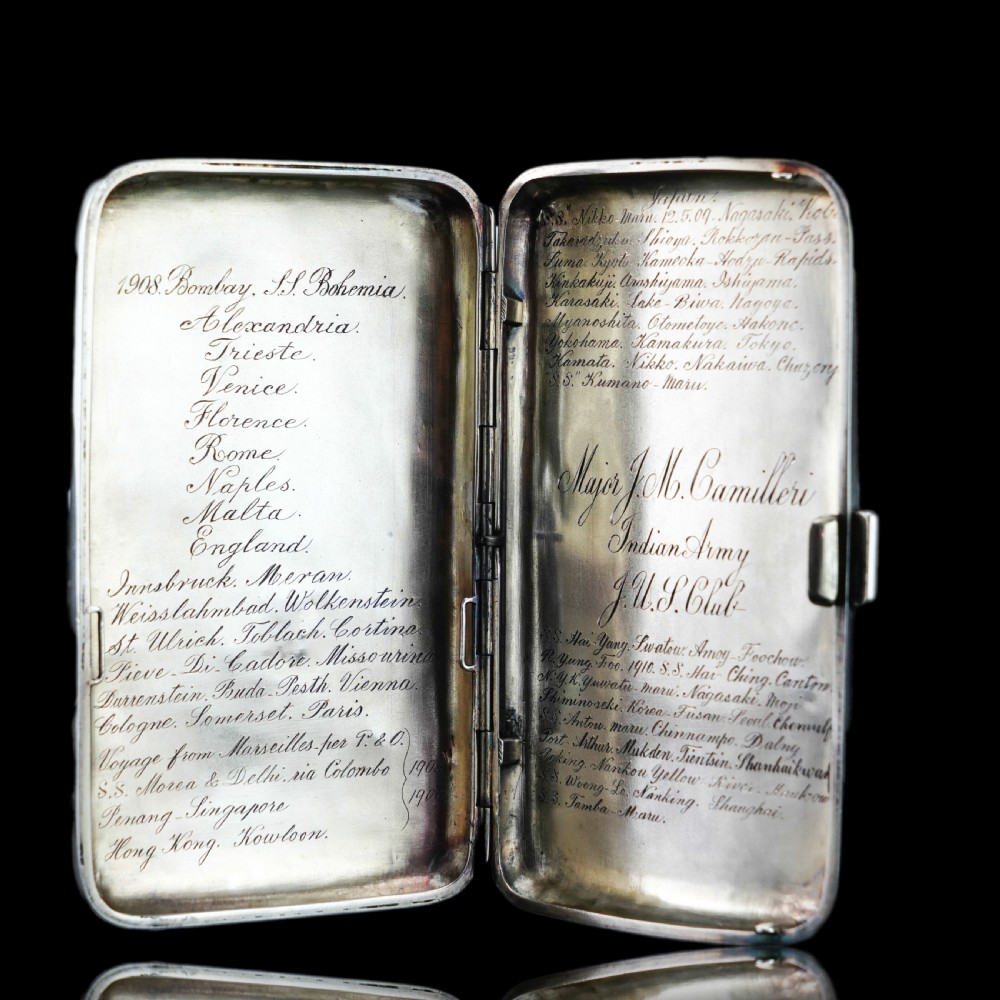 1908. Bombay. S.S. Bohemia.
Alexandria.
Trieste.
Venice.
Florence.
Rome.
Naples.
Malta.
England.
Innsbruck. Meran.
Weisslahmbad. Wolkenstein.
St. Ulrich. Toblach. Cortina.
Pieve-Di-Cadore. Missourina
Durrenstein. Buda-Pesth. Vienna.
Cologne. Somerset. Paris.
Voyage from Marseilles-per P. & O.
S.S. Morea & Delhi via Colombo
Penang-Singapore
Hong Kong. Kowloon.
Japan.
S.S." Nikko-Maru. 12.5.09. Nagasaki.
Shioya. Rokkozan-Pass.
Suma. Kyoto-Kameoka-Hodzu-Rapids.
Kinkakuji. Arashiyama. Ishiyama.
Karasaki. Lake-Biwa. Nagoya.
Myanoshita. Otometoge. Hakone.
Yokohama. Kamakura. Tokyo.
Kamata. Nikko. Nakaiwa.
"S.S." Kumano-Maru.
Major J. M. Camilleri
Indian Army
J.U.S. Club
S.S. Hai-Yang. Swatow. Amoy-Foochow.
Yung. Foo. 1910. S.S. Hai-Ching. Canton.
N.Y.K. Maru. Nagasaki. Moji
Shiminoseki. Korea-Fusan. Seoul.
S.S. Antou. maru. Chinnampo. Dalny
Port. Arthur. Mukden. Tientsin.
Peking. Nankou Yellow-River.
S.S. Nanking. Shanghai.
S.S. Tamba-Maru.